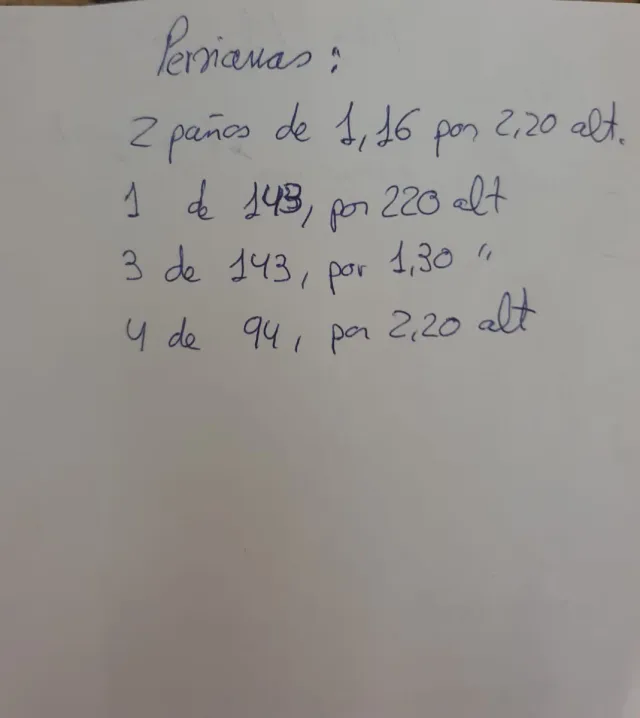 Persianas :
2 paños de 1,16 por 2,20 alt.
1 de 143, por 220 alt
3 de 143, por 1,30 "
4 de 94, por 2,20 alt